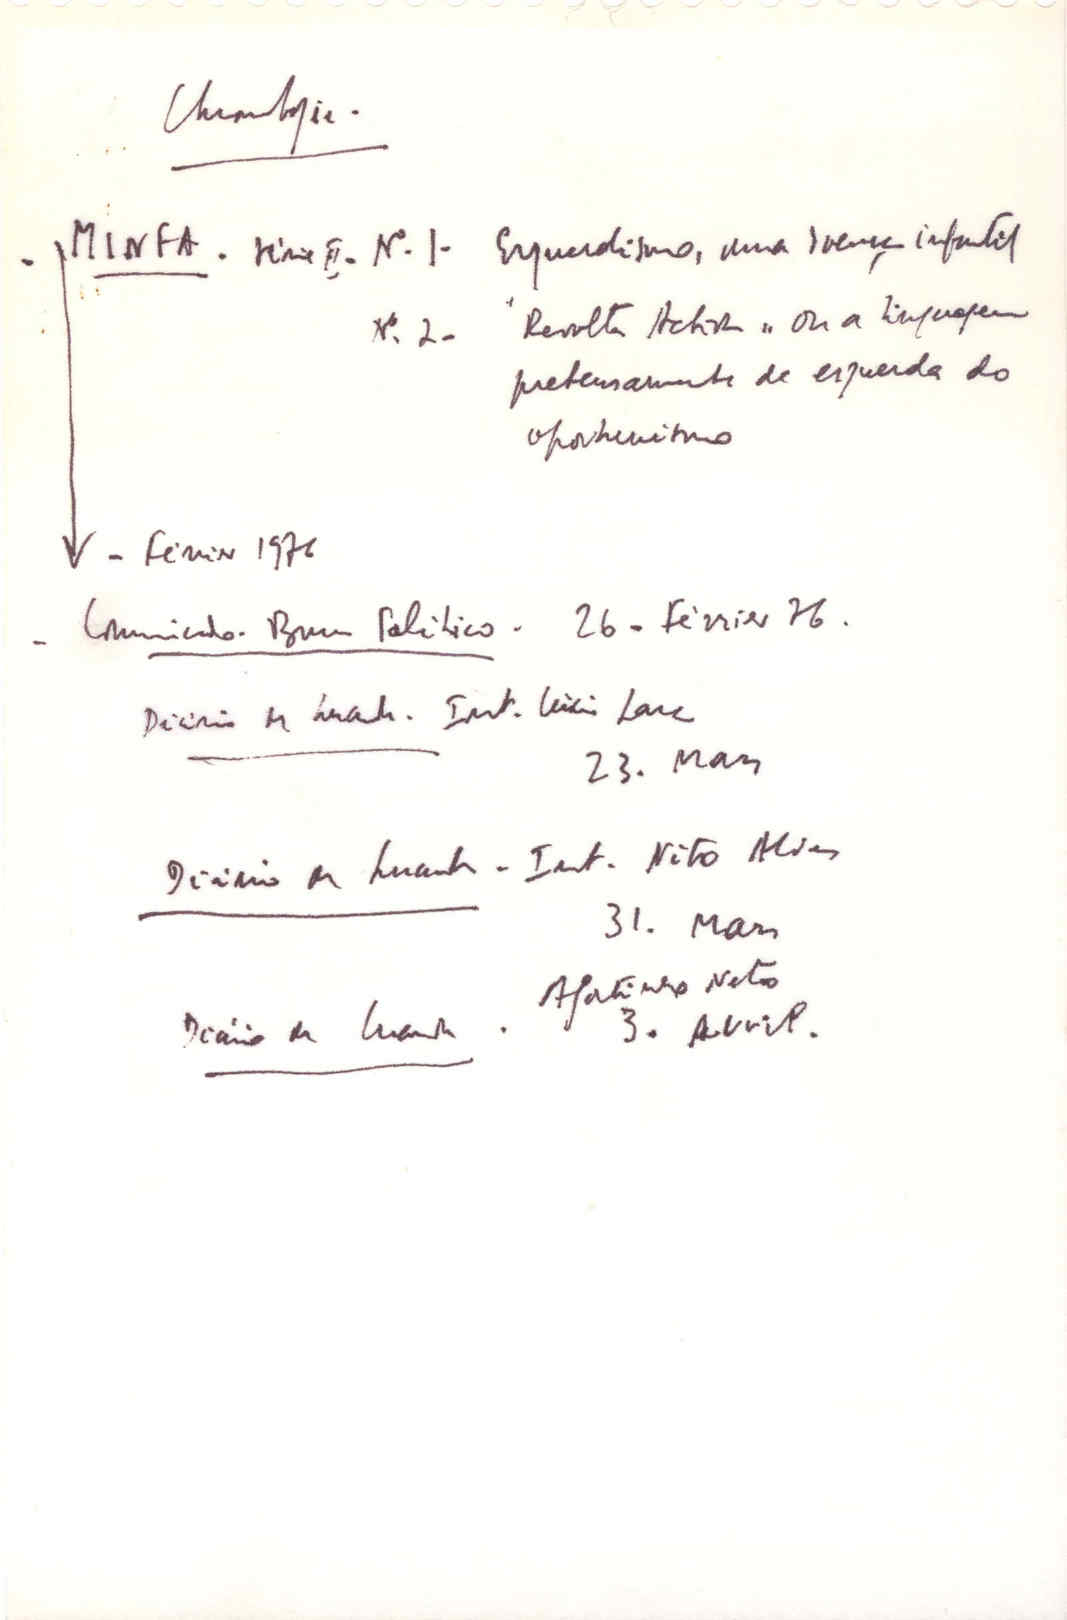 Chronologie.
- MINFA. Série II. Nº. 1- Esquerdismo, uma doença infantil
Nº. 2- "Revolta Activa" ou a linguagem
pretensamente de esquerda do
oportunismo
- Février 1976
- Comunicado. Bureau Político. 26 - Février 76.
Diário de Luanda. Int. Lúcio Lara
23. Mars
Diário de Luanda - Int. Nito Alves
31. Mars
Agostinho Neto
Diário de Luanda . 3. Avril.